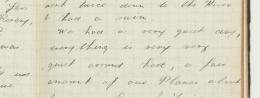 went twice down to the River
& had a swim
We had a very quiet day,
everything is very very
quiet around here, a fair
amount of our Planes about